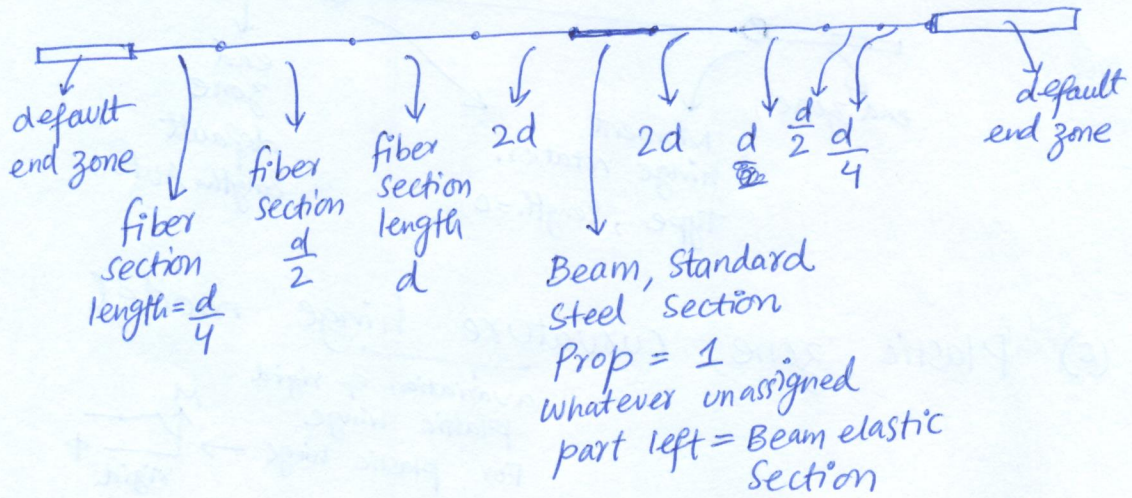 default
end zone
fiber
section
length = d/4
fiber
section
d/2
fiber
section
length
d
2d
Beam, Standard
Steel Section
Prop = 1
whatever unassigned
part left = Beam elastic
Section
2d
d
d/2
d/4
default
end zone